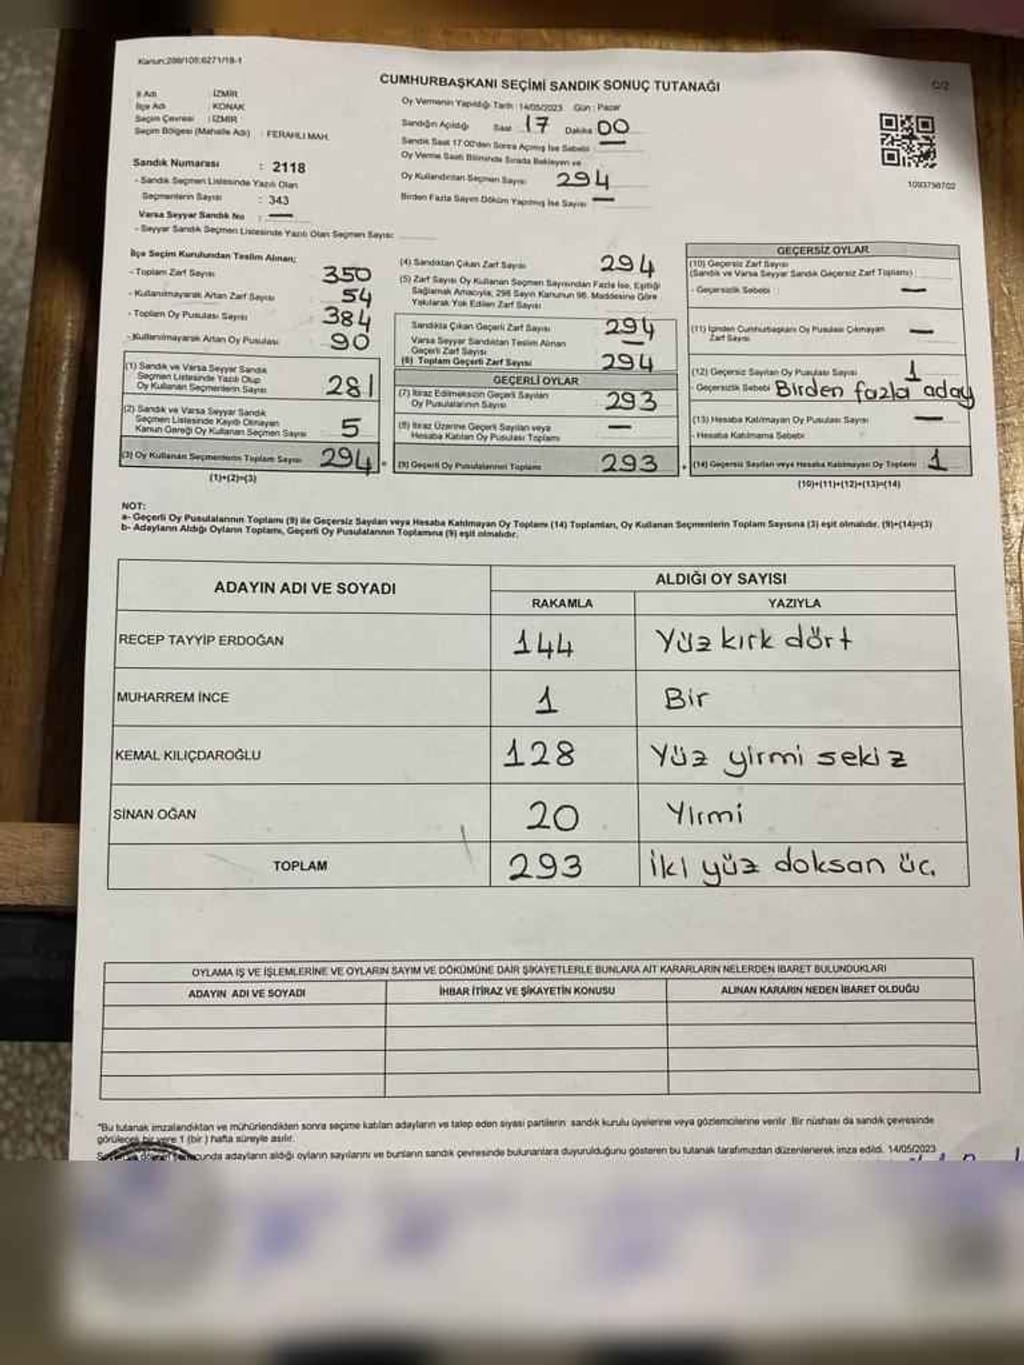 Kanun:298/105;6271/18-1
CUMHURBAŞKANI SEÇİMİ SANDIK SONUÇ TUTANAĞI
İl Adı İZMİR
İlçe Adı KONAK
Seçim Çevresi : İZMİR
Seçim Bölgesi (Mahalle Adı) : FERAHLI MAH.
Sandık Numarası : 2118
- Sandık Seçmen Listesinde Yazılı Olan
Seçmenlerin Sayısı : 343
Varsa Seyyar Sandık No : —
- Seyyar Sandık Seçmen Listesinde Yazılı Olan Seçmen Sayısı:
Oy Vermenin Yapıldığı Tarih : 14/05/2023 Gün : Pazar
Sandığın Açıldığı Saat 17 Dakika 00
Sandık Saat 17:00'den Sonra Açılmış İse Sebebi —
Oy Verme Saati Bitiminde Sırada Bekleyen ve
Oy Kullandırılan Seçmen Sayısı 294
Birden Fazla Sayım Döküm Yapılmış İse Sayısı —
1093756702
İlçe Seçim Kurulundan Teslim Alınan;
- Toplam Zarf Sayısı 350
- Kullanılmayarak Artan Zarf Sayısı 54
- Toplam Oy Pusulası Sayısı 384
- Kullanılmayarak Artan Oy Pusulası 90
(1) Sandık ve Varsa Seyyar Sandık
Seçmen Listesinde Yazılı Olup
Oy Kullanan Seçmenlerin Sayısı 281
(2) Sandık ve Varsa Seyyar Sandık
Seçmen Listesinde Kaydı Olmayan
Kanun Gereği Oy Kullanan Seçmen Sayısı 5
(3) Oy Kullanan Seçmenlerin Toplam Sayısı 294
(1)+(2)=(3)
(4) Sandıktan Çıkan Zarf Sayısı 294
(5) Zarf Sayısı Oy Kullanan Seçmen Sayısından Fazla İse, Eşitliği
Sağlamak Amacıyla, 298 Sayılı Kanunun 98. Maddesine Göre
Yakılarak Yok Edilen Zarf Sayısı
Sandıkta Çıkan Geçerli Zarf Sayısı 294
Varsa Seyyar Sandıktan Teslim Alınan
Geçerli Zarf Sayısı —
(6) Toplam Geçerli Zarf Sayısı 294
GEÇERLİ OYLAR
(7) İtiraz Edilmeksizin Geçerli Sayılan
Oy Pusulalarının Sayısı 293
(8) İtiraz Üzerine Geçerli Sayılan veya
Hesaba Katılan Oy Pusulası Toplamı —
(9) Geçerli Oy Pusulalarının Toplamı 293
GEÇERSİZ OYLAR
(10) Geçersiz Zarf Sayısı
(Sandık ve Varsa Seyyar Sandık Geçersiz Zarf Toplamı)
- Geçersizlik Sebebi —
(11) İçinden Cumhurbaşkanı Oy Pusulası Çıkmayan
Zarf Sayısı —
(12) Geçersiz Sayılan Oy Pusulası Sayısı 1
- Geçersizlik Sebebi Birden fazla aday
(13) Hesaba Katılmayan Oy Pusulası Sayısı —
- Hesaba Katılmama Sebebi
(14) Geçersiz Sayılan veya Hesaba Katılmayan Oy Toplamı 1
(10)+(11)+(12)+(13)=(14)
NOT:
a- Geçerli Oy Pusulalarının Toplamı (9) ile Geçersiz Sayılan veya Hesaba Katılmayan Oy Toplamı (14) Toplamları, Oy Kullanan Seçmenlerin Toplam Sayısına (3) eşit olmalıdır. (9)+(14)=(3)
b- Adayların Aldığı Oyların Toplamı, Geçerli Oy Pusulalarının Toplamına (9) eşit olmalıdır.
ADAYIN ADI VE SOYADI ALDIĞI OY SAYISI
RAKAMLA YAZIYLA
RECEP TAYYİP ERDOĞAN 144 Yüz kırk dört
MUHARREM İNCE 1 Bir
KEMAL KILIÇDAROĞLU 128 Yüz yirmi sekiz
SİNAN OĞAN 20 Yirmi
TOPLAM 293 İki yüz doksan üç
OYLAMA İŞ VE İŞLEMLERİNE VE OYLARIN SAYIM VE DÖKÜMÜNE DAİR ŞİKAYETLERLE BUNLARA AİT KARARLARIN NELERDEN İBARET BULUNDUKLARI
ADAYIN ADI VE SOYADI İHBAR İTİRAZ VE ŞİKAYETİN KONUSU ALINAN KARARIN NEDEN İBARET OLDUĞU
"Bu tutanak imzalandıktan ve mühürlendikten sonra seçime katılan adayların ve talep eden siyasi partilerin sandık kurulu üyelerine veya gözlemcilerine verilir. Bir nüshası da sandık çevresinde
görülecek bir yere 1 (bir ) hafta süreyle asılır.
adayların aldığı oyların sayılarını ve bunların sandık çevresinde bulunanlara duyurulduğunu gösteren bu tutanak tarafımızdan düzenlenerek imza edildi. 14/05/2023